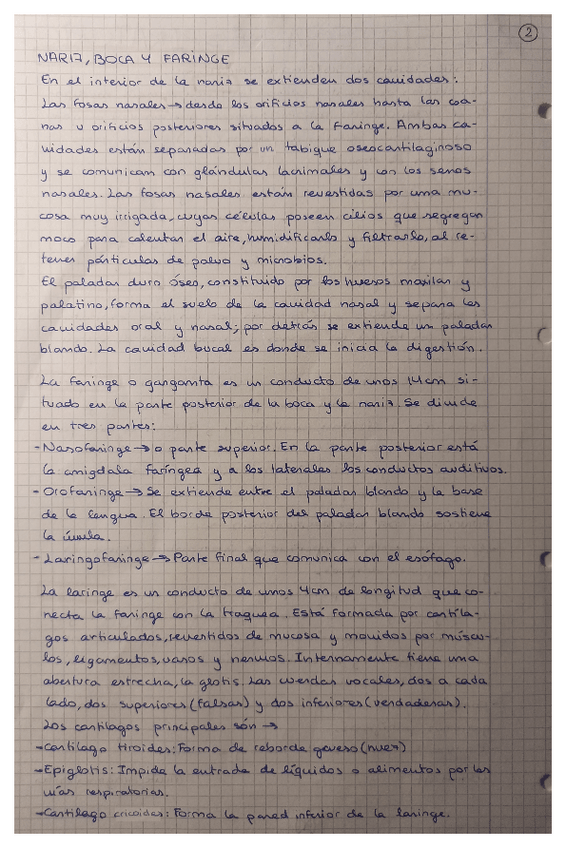 2
NARIZ, BOCA Y FARINGE
En el interior de la nariz se extienden dos cavidades:
Las fosas nasales → desde los orificios nasales hasta las coa-
nas u orificios posteriores situados a la Faringe. Ambas ca-
vidades están separadas por un tabique oseocartilaginoso
y se comunican con glándulas lacrimales y con los senos
nasales. Las fosas nasales están revestidas por una mu-
cosa muy irrigada, cuyas células poseen cilios que segregan
moco para calentar el aire, humidificarlo y filtrarlo, al re-
tener partículas de polvo y microbios.
El paladar duro óseo, constituido por los huesos maxilar y
palatino, forma el suelo de la cavidad nasal y separa las
cavidades oral y nasal; por detrás se extiende un paladar
blando. La cavidad bucal es donde se inicia la digestión.
La faringe o garganta es un conducto de unos 14cm si-
tuado en la parte posterior de la boca y la nariz. Se divide
en tres partes:
- Nasofaringe → o parte superior. En la parte posterior está
la amigdala faríngea y a los laterales los conductos auditivos.
- Orofaringe → Se extiende entre el paladar blando y la base
de la lengua. El borde posterior del paladar blando sostiene
la úvula.
- Laringofaringe → Parte final que comunica con el esófago.
La laringe es un conducto de unos 4cm de longitud que co-
necta la faringe con la traquea. Está formada por cartíla-
gos articulados, revestidos de mucosa y movidos por múscu-
los, ligamentos, vasos y nervios. Internamente tiene una
abertura estrecha, la glotis. Las cuerdas vocales, dos a cada
lado, dos superiores (falsas) y dos inferiores (verdaderas).
Los cartílagos principales són →
- Cartílago tiroides: Forma de reborde grueso (nuez)
- Epiglotis: Impide la entrada de líquidos o alimentos por las
vías respiratorias.
- Cartílago cricoides: Forma la pared inferior de la laringe.